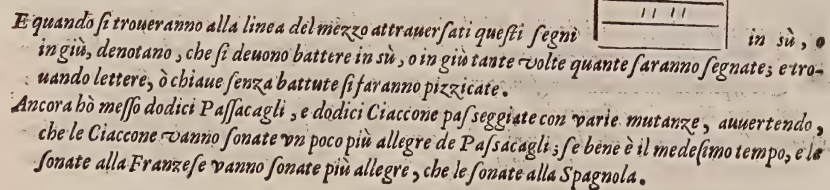 E quando ſi troueranno alla linea del mezzo attrauerſati queſti ſegni in sù, o
in giù, denotano, che ſi deuono battere in sù, o in giù tante volte quante ſaranno ſegnate; e tro-
uando lettere, ò chiaue ſenza battute ſi faranno pizzicate.
Ancora hò meſſo dodici Paſſacagli, e dodici Ciaccone paſſeggiate con varie mutanze, auuertendo,
che le Ciaccone vanno ſonate vn poco più allegre de Paſsacagli; ſe bene è il medeſimo tempo, e le
ſonate alla Franzeſe vanno ſonate più allegre, che le ſonate alla Spagnola.